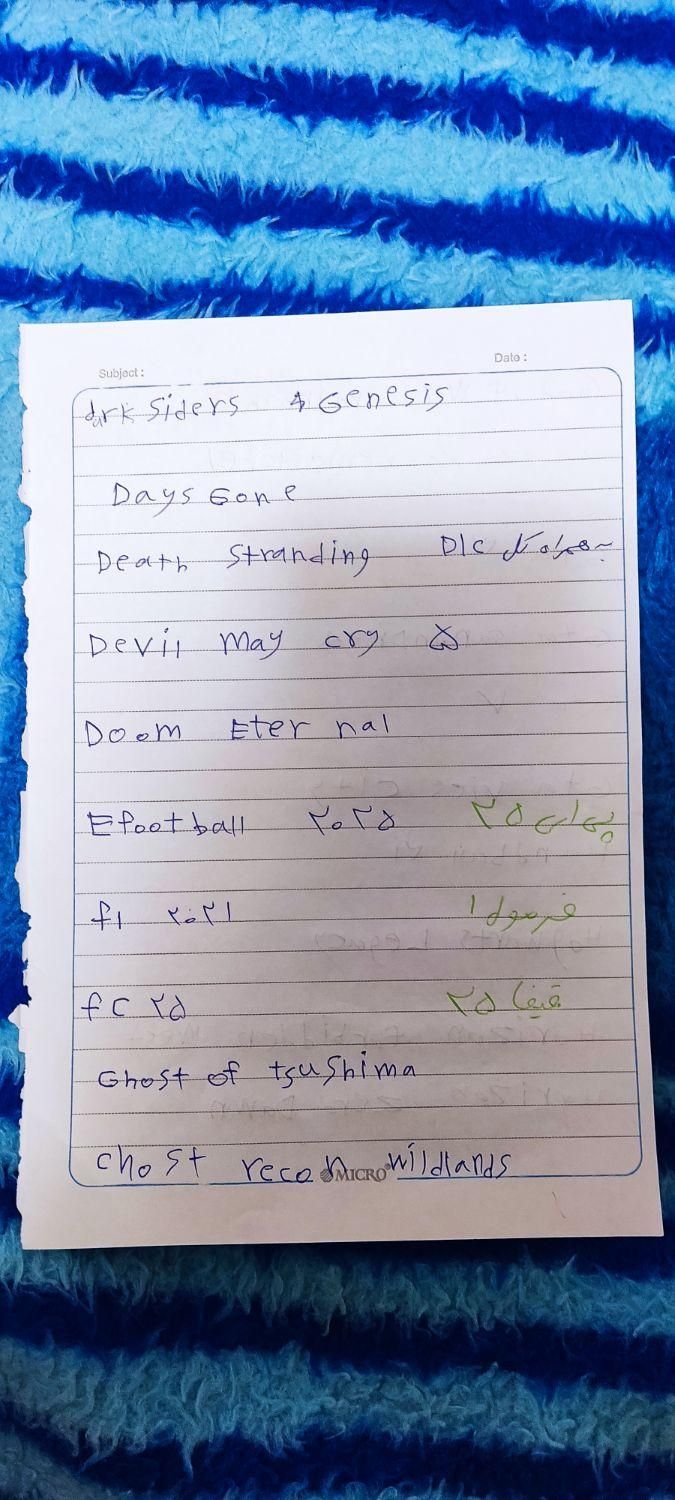 Subject :
Date :
dark Siders & Genesis
Days Gone
Death Stranding DLC به همراه کل
Devil May cry ۵
Doom Eternal
Efootball ۲۰۲۵ پی اس ۲۵
f1 ۲۰۲۱ فرمول ۱
fC ۲۵ فیفا ۲۵
Ghost of tsushima
Chost recon wildlands
MICRO